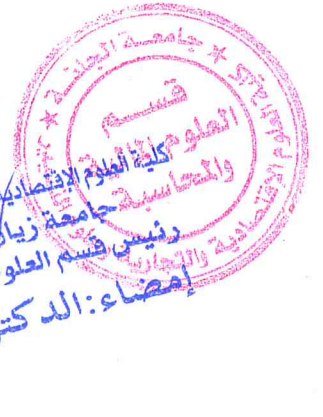 جامعة الجلفة
قسم
العلوم المالية
والمحاسبة
كلية العلوم الاقتصادية
جامعة زيان
رئيس قسم العلو
إمضاء: الدكتو